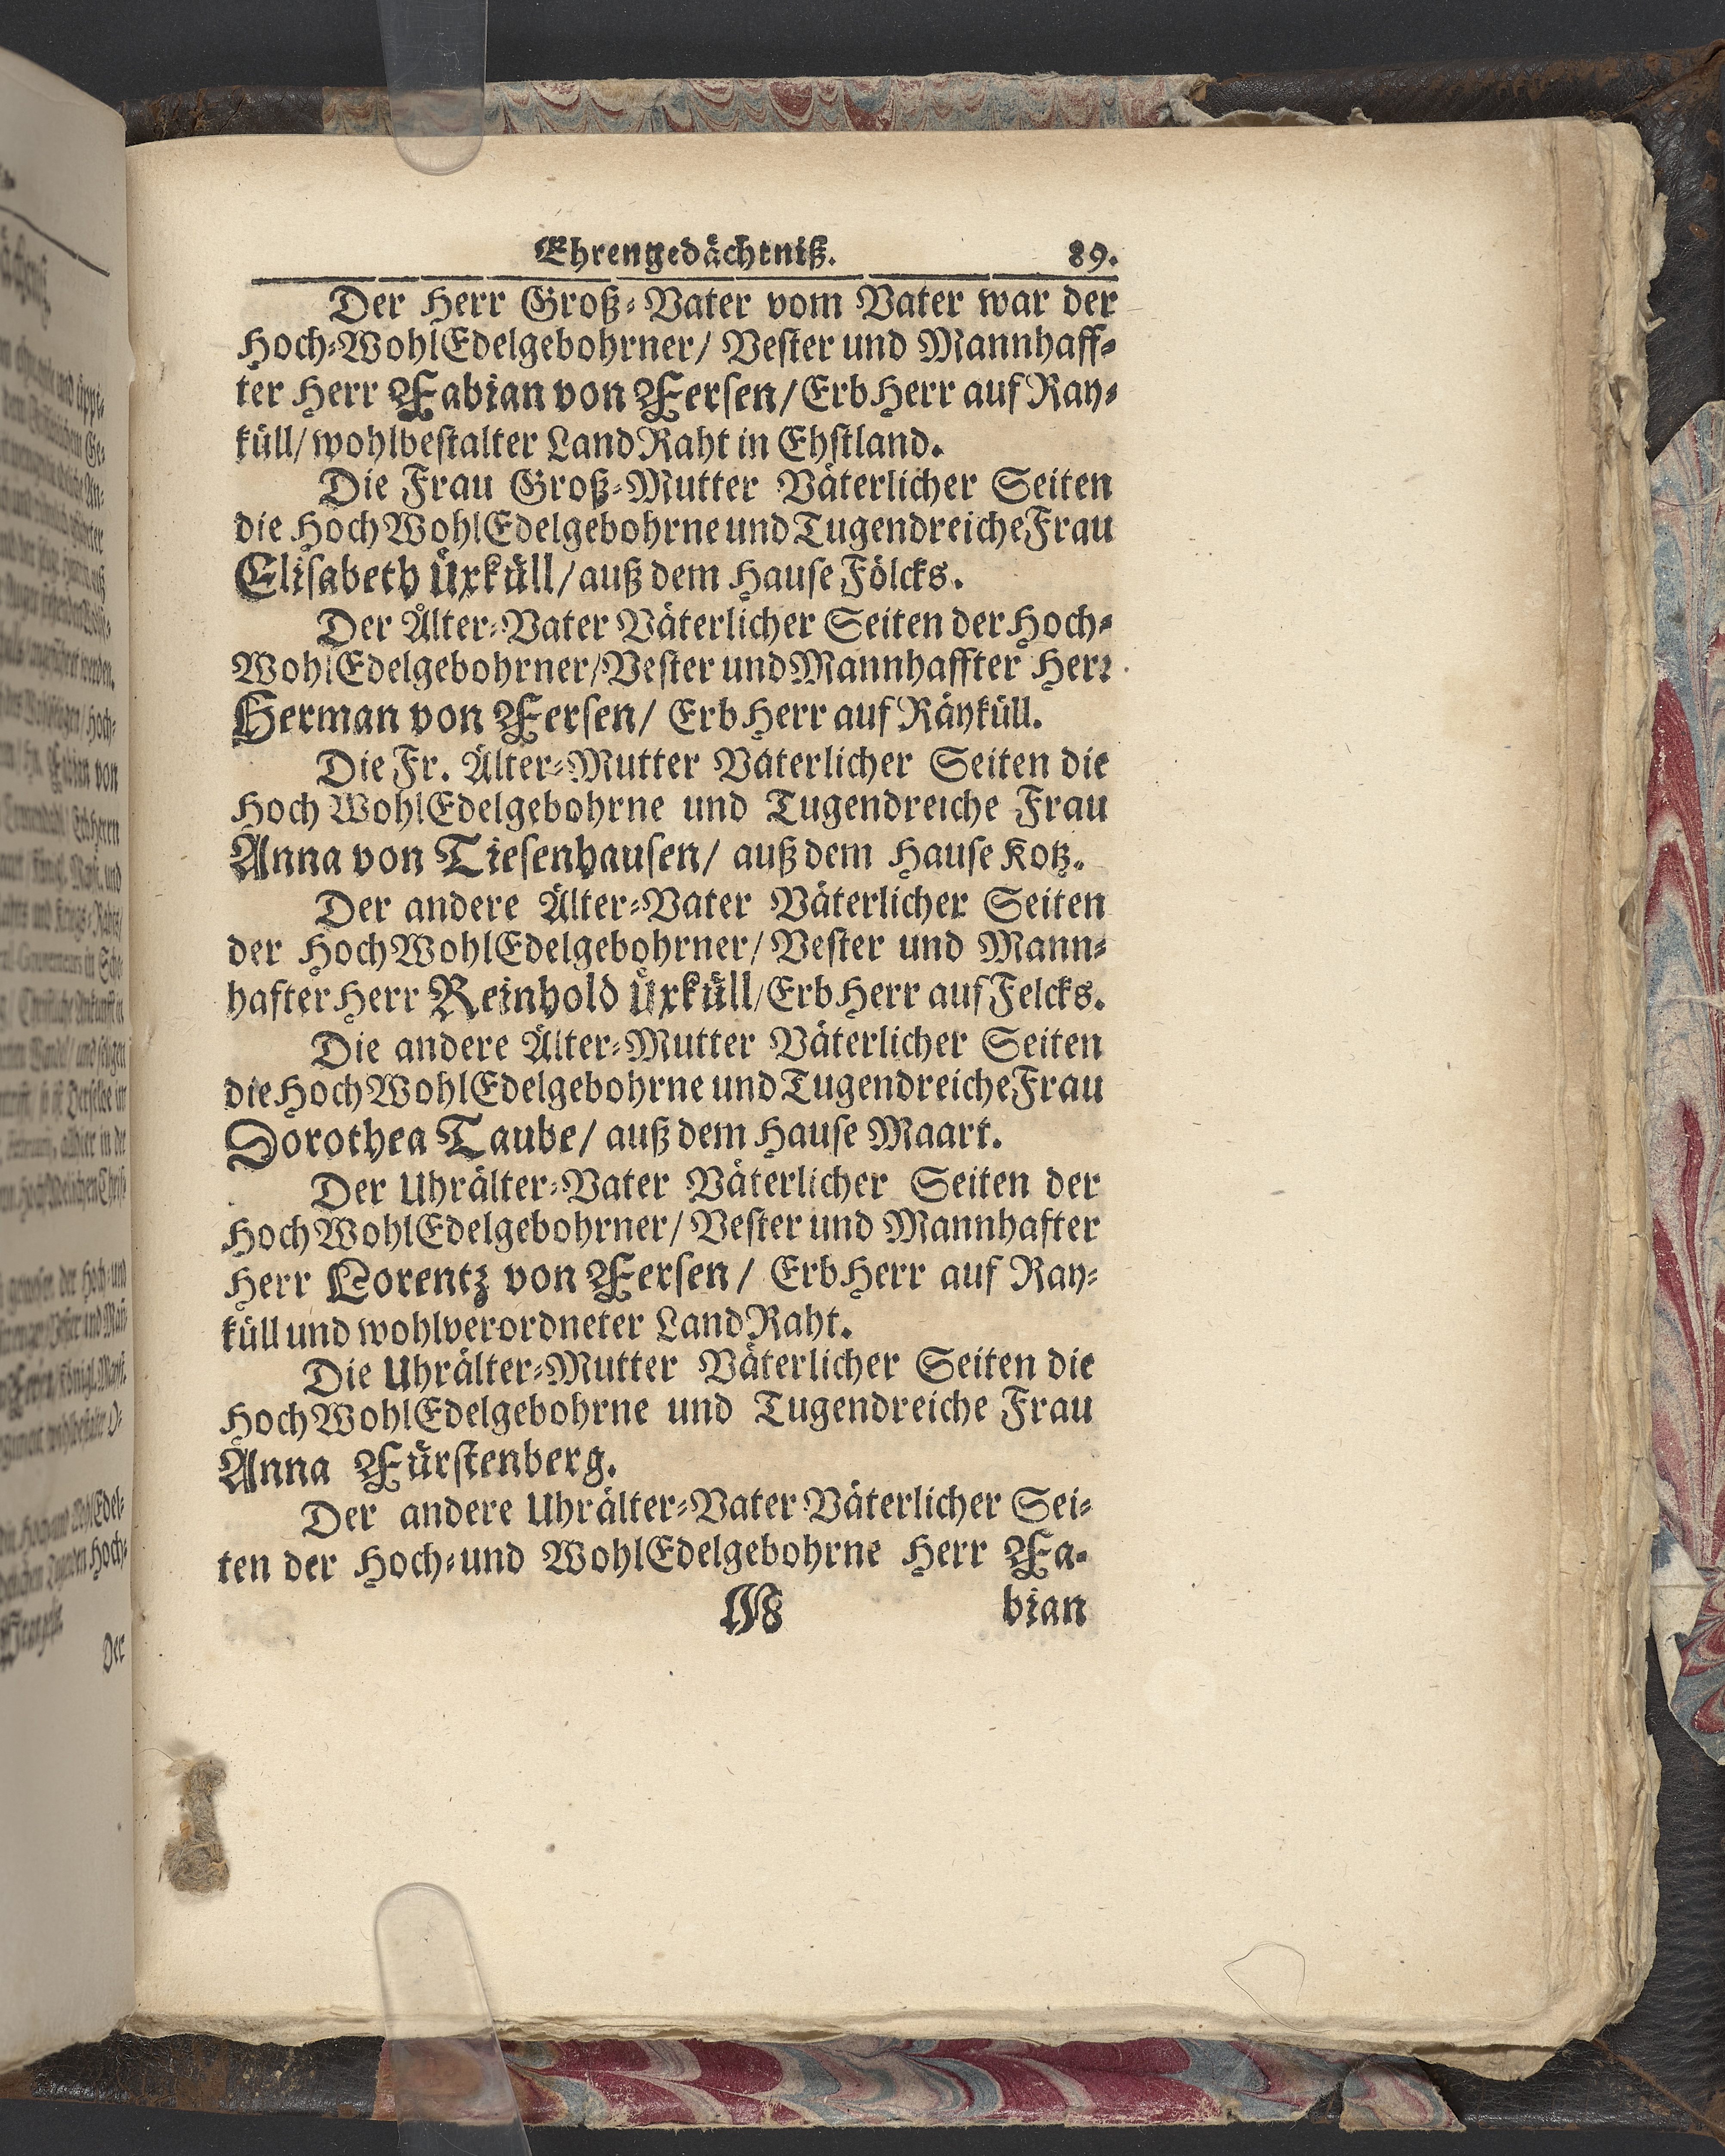 Ehrengedächtniß. 89.
Der Herr Groß-Vater vom Vater war der
Hoch-WohlEdelgebohrner/ Vester und Mannhaff-
ter Herr Fabian von Fersen/ ErbHerr auf Ray-
küll/ wohlbestalter LandRaht in Ehstland.
Die Frau Groß-Mutter Väterlicher Seiten
die HochWohlEdelgebohrne und Tugendreiche Frau
Elisabeth Üxküll/ auß dem Hause Fölcks.
Der Älter-Vater Väterlicher Seiten der Hoch-
WohlEdelgebohrner/ Vester und Mannhaffter Herr
Herman von Fersen/ ErbHerr auf Räyküll.
Die Fr. Älter-Mutter Väterlicher Seiten die
HochWohlEdelgebohrne und Tugendreiche Frau
Anna von Tiesenhausen/ auß dem Hause Kotz.
Der andere Älter-Vater Väterlicher Seiten
der HochWohlEdelgebohrner/ Vester und Mann-
hafter Herr Reinhold Üxküll/ ErbHerr auf Felcks.
Die andere Älter-Mutter Väterlicher Seiten
die HochWohlEdelgebohrne und Tugendreiche Frau
Dorothea Taube/ auß dem Hause Maart.
Der Uhrälter-Vater Väterlicher Seiten der
HochWohlEdelgebohrner/ Vester und Mannhafter
Herr Lorentz von Fersen/ ErbHerr auf Ray-
küll und wohlverordneter LandRaht.
Die Uhrälter-Mutter Väterlicher Seiten die
HochWohlEdelgebohrne und Tugendreiche Frau
Anna Fürstenberg.
Der andere Uhrälter-Vater Väterlicher Sei-
ten der Hoch-und WohlEdelgebohrne Herr Fa-
M bian
Der